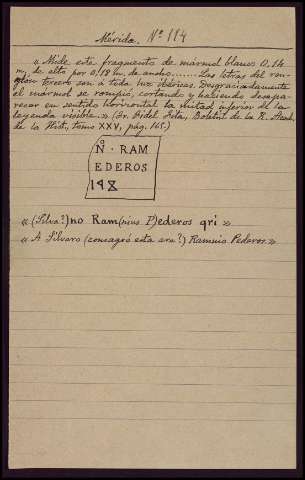 Mérida. Nº 114
« Mide este fragmento de mármol blanco 0,14
m. de alto por 0,18 m. de ancho....... Las letras del ren-
glón tercero son a toda luz ibéricas. Desgraciadamente
el mármol se rompió, cortando y haciendo desapa-
recer en sentido horizontal la mitad inferior de la
leyenda visible.» (Sr. Fidel Fita, Boletín de la R. Acad.
de la Hist., tomo XXV, pág. 165.)
Nº · RAM
EDEROS
« (Silva?)no Ram(nius P)ederos qri »
« A Silvano (consagró esta ara?) Ramnio Pederos.»